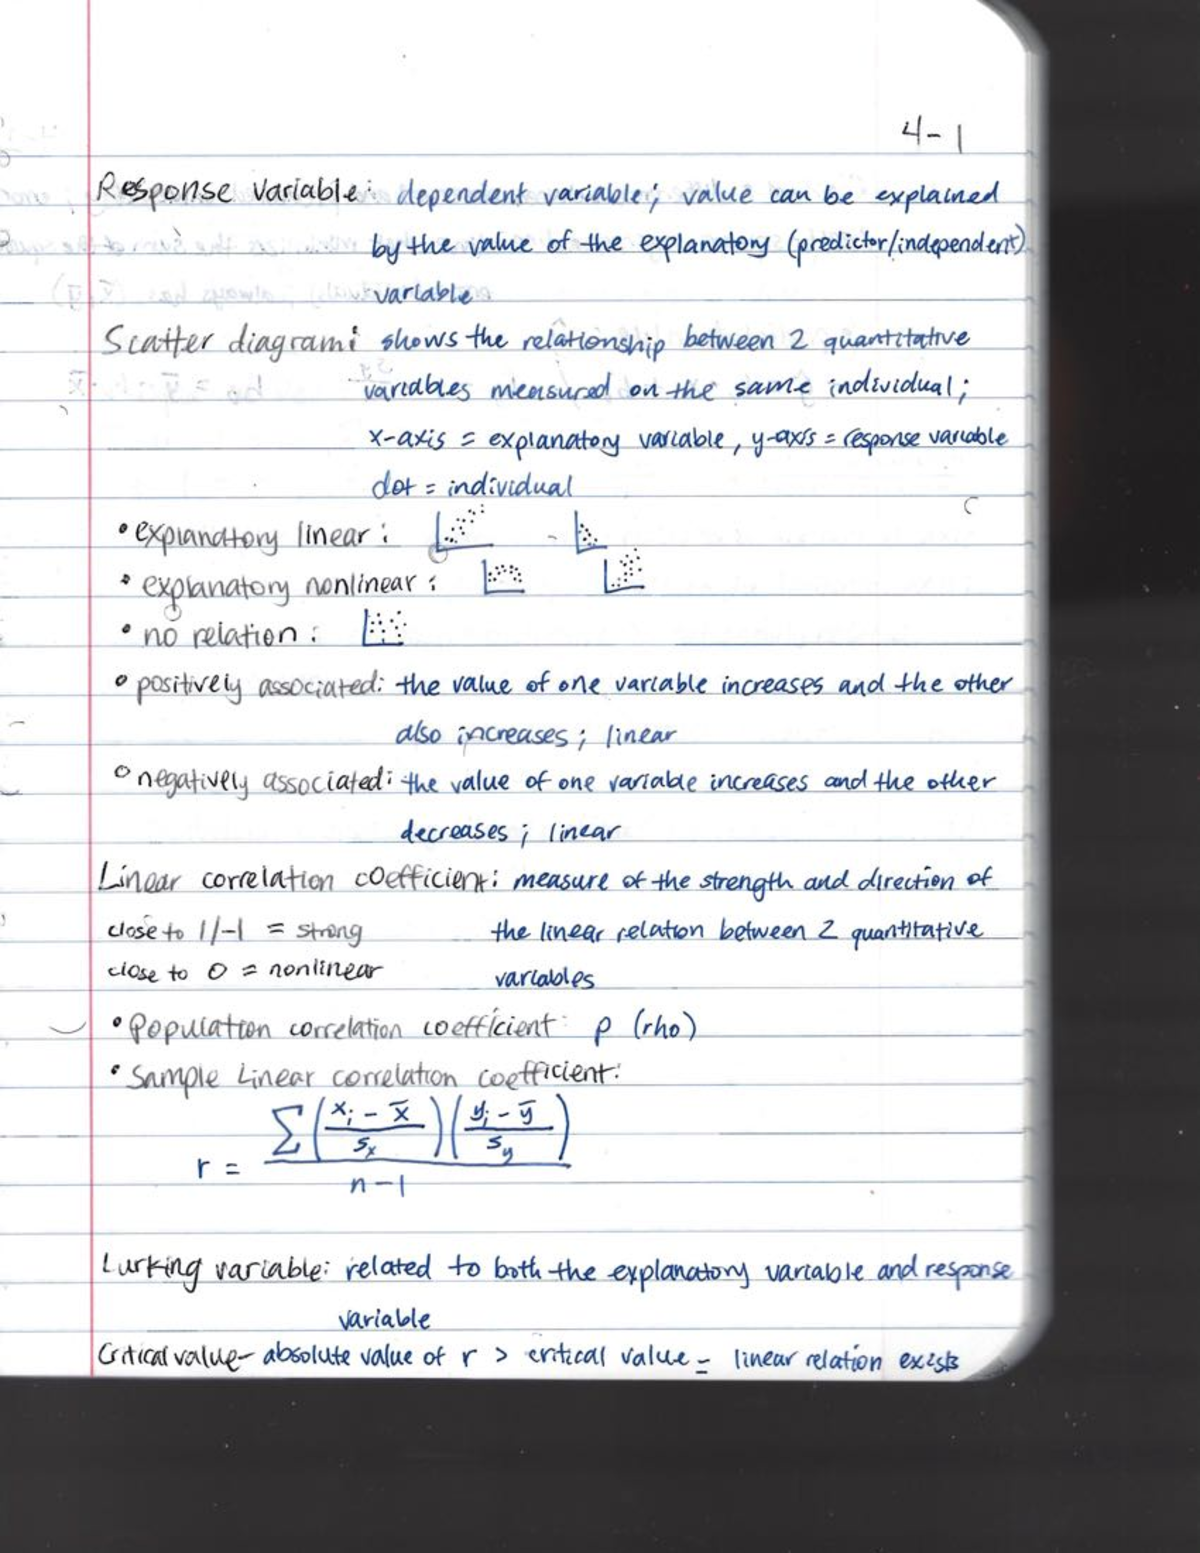 4-1
Response variable: dependent variable; value can be explained
by the value of the explanatory (predictor/independent)
variable
Scatter diagram: shows the relationship between 2 quantitative
variables measured on the same individual;
x-axis = explanatory variable, y-axis = response variable
dot = individual
• explanatory linear:
• explanatory nonlinear:
• no relation:
• positively associated: the value of one variable increases and the other
also increases; linear
• negatively associated: the value of one variable increases and the other
decreases; linear
Linear correlation coefficient: measure of the strength and direction of
close to 1/-1 = strong the linear relation between 2 quantitative
close to 0 = nonlinear variables
• Population correlation coefficient: ρ (rho)
• Sample Linear correlation coefficient:
r = Σ((xᵢ - x̄)/sₓ)((yᵢ - ȳ)/s_y) / (n-1)
Lurking variable: related to both the explanatory variable and response
variable
Critical value- absolute value of r > critical value = linear relation exists